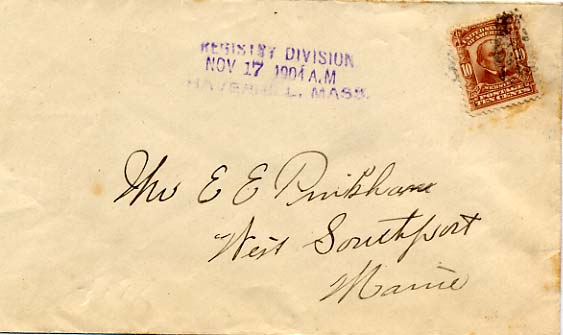 REGISTRY DIVISION
NOV 17 1904 A.M
HAVERHILL, MASS.
10 10
POSTAGE
TEN CENTS
E E Pinkham
West Southport
Maine